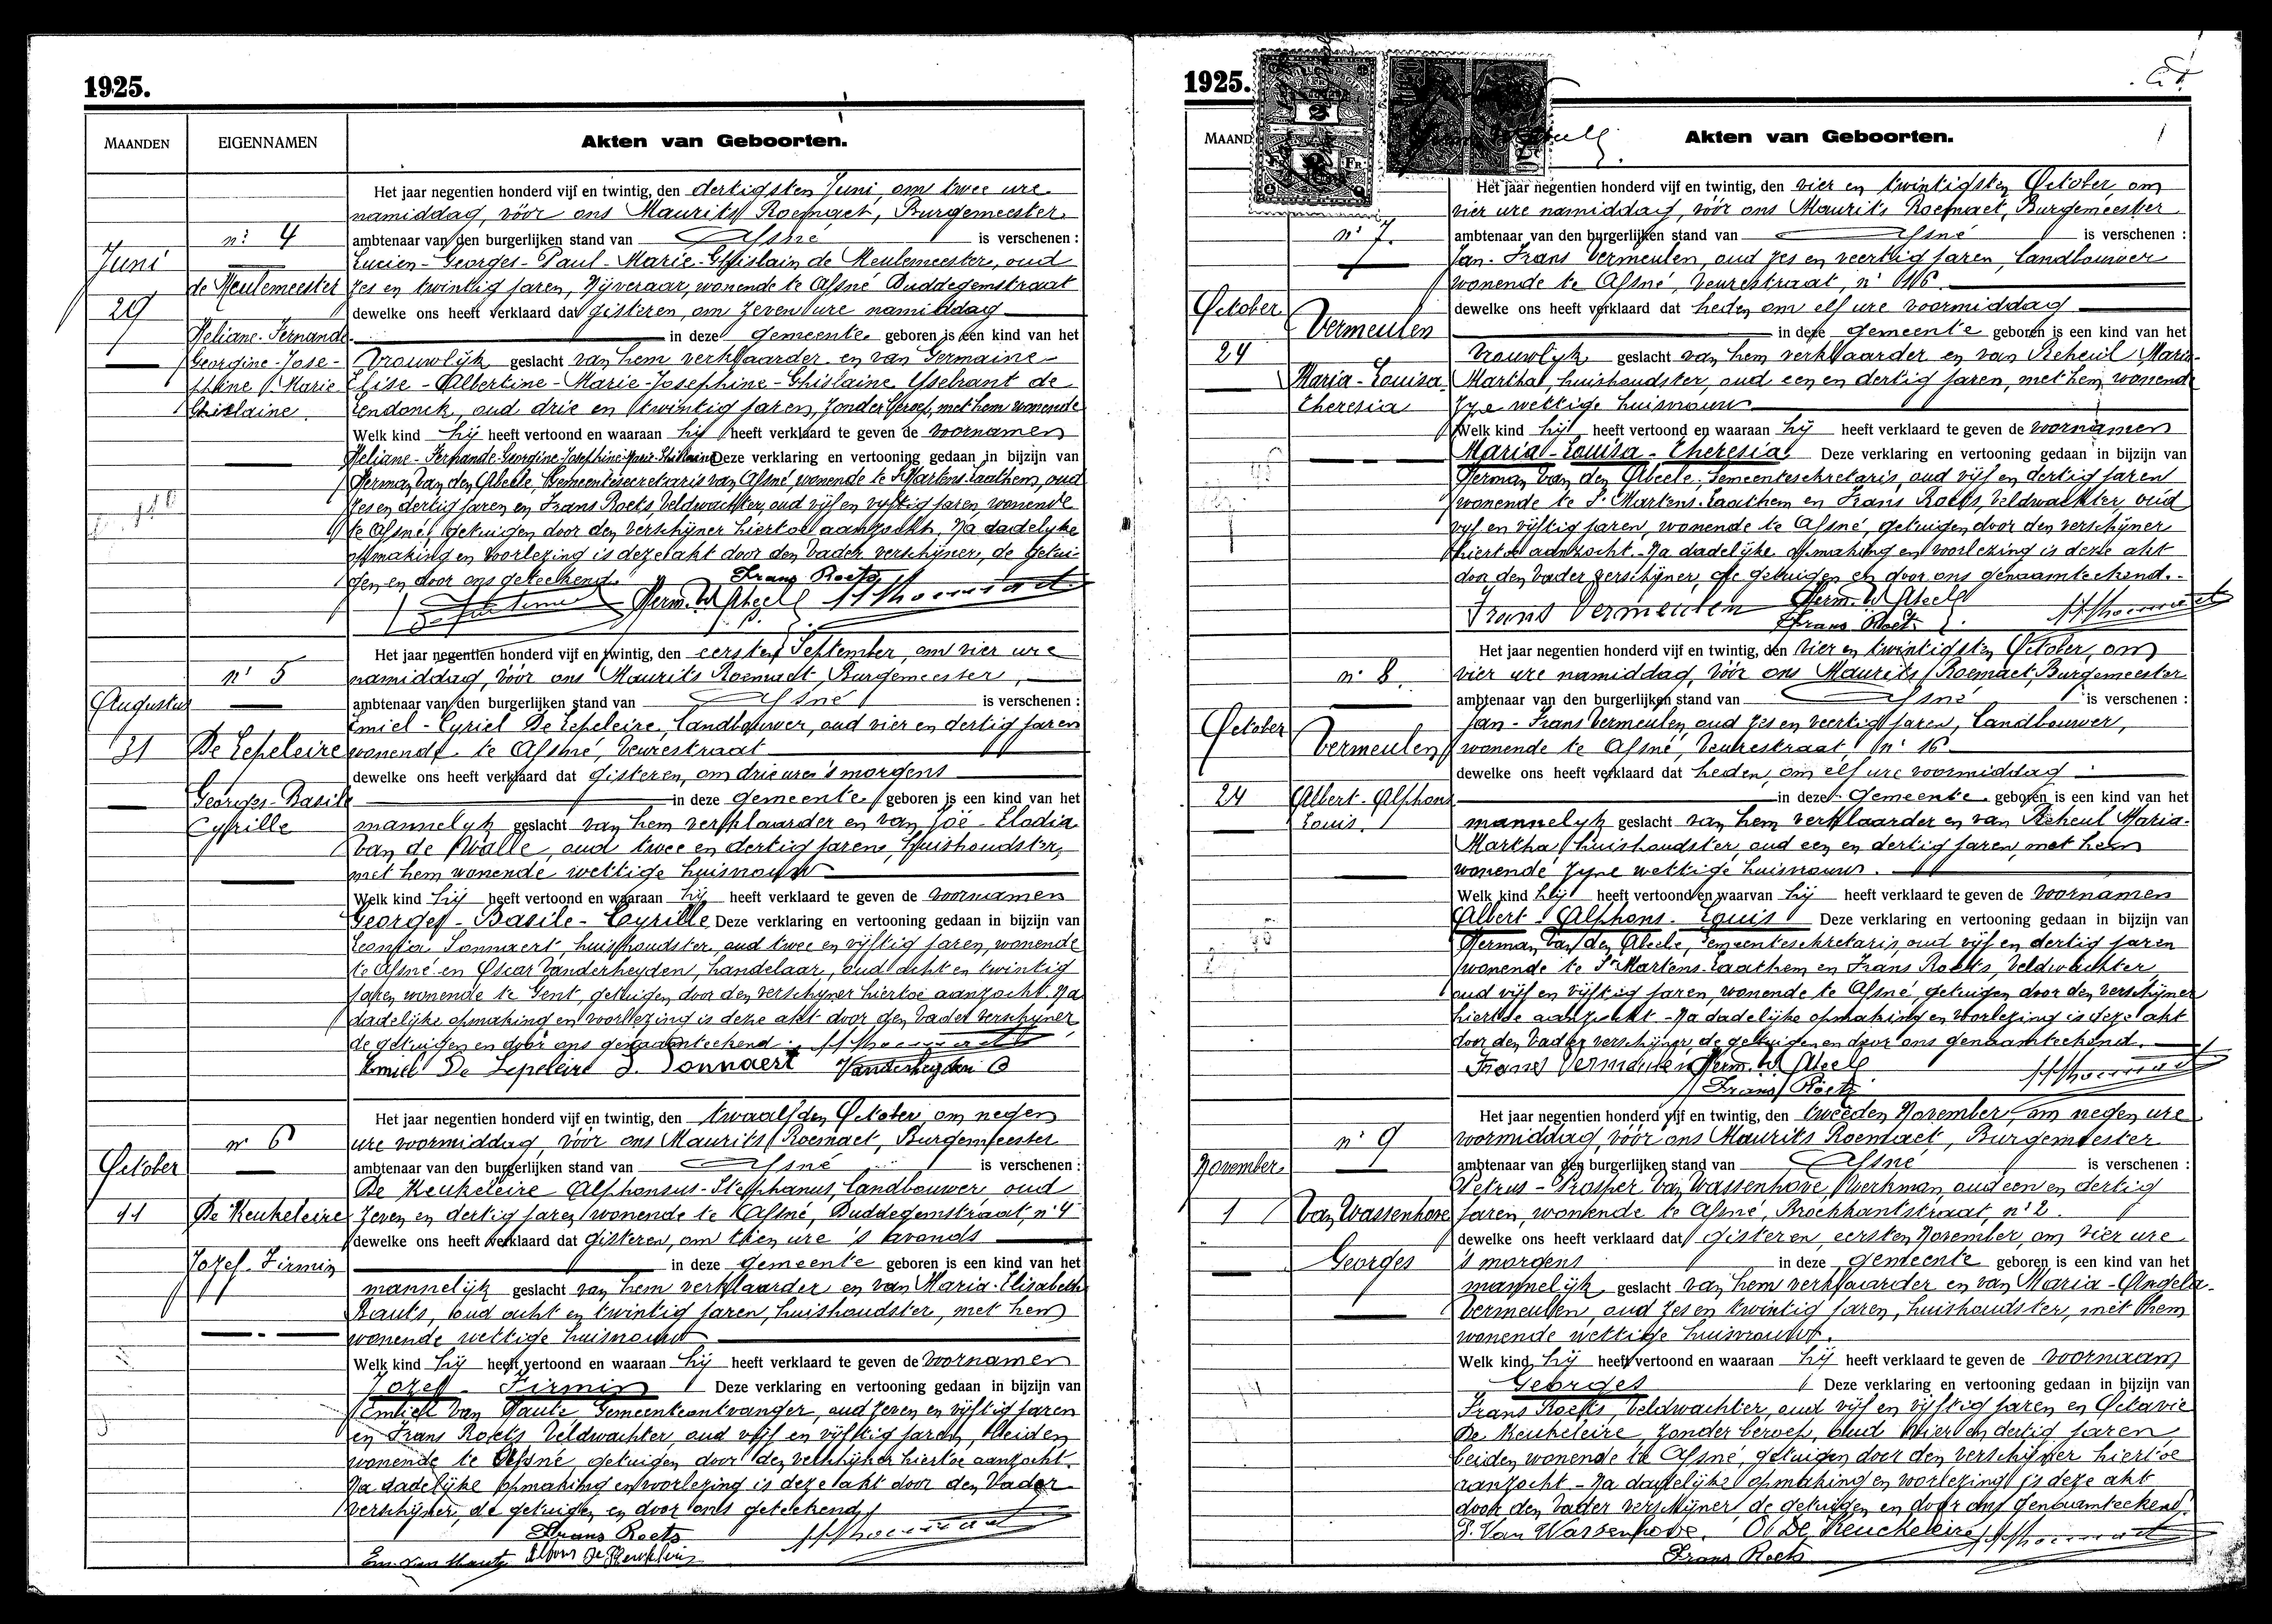 1925.
MAANDEN
EIGENNAMEN
Akten van Geboorten.
nr 4
Juni
29
de Meulemeester
Heliane-Fernande
Georgine-Jose-
phine Marie
Ghislaine.
Het jaar negentien honderd vijf en twintig, den dertigsten Juni, om twee ure
namiddag, vóór ons Maurits Roemaet, Burgemeester
ambtenaar van den burgerlijken stand van Afsné is verschenen :
Lucien-Georges-Paul-Marie-Ghislain de Meulemeester, oud
zes en twintig jaren, Nijveraar, wonende te Afsné Duddegemstraat
dewelke ons heeft verklaard dat gisteren, om zeven ure namiddag
in deze gemeente geboren is een kind van het
vrouwelijk geslacht van hem verklaarder en van Germaine-
Elise-Albertine-Marie-Josephine-Ghislaine Ysebrant de
Lendonck, oud drie en twintig jaren, zonder beroep, met hem wonende
Welk kind hij heeft vertoond en waaraan hij heeft verklaard te geven de voornamen
Heliane-Fernande-Georgine-Josephine-Marie-Ghislaine Deze verklaring en vertooning gedaan in bijzijn van
Herman Van den Abeele, Gemeentesecretaris van Afsné, wonende te St Martens-Laathem, oud
zes en dertig jaren en Frans Roets Veldwachter, oud vijf en vijftig jaren, wonende
te Afsné, getuigen door den verschijner hiertoe aanzocht. Na dadelijke
opmaking en voorlezing is deze akt door den vader verschijner, de getui-
gen en door ons geteekend.
Frans Roets
Herm. V. d. Abeele
nr 5
Augustus
31
De Lepeleire
Georges-Basile
Cyrille
Het jaar negentien honderd vijf en twintig, den eersten September, om vier ure
namiddag, vóór ons Maurits Roemaet, Burgemeester,
ambtenaar van den burgerlijken stand van Afsné is verschenen :
Emiel-Cyriel De Lepeleire, Landbouwer, oud vier en dertig jaren
wonende te Afsné, Veurestraat
dewelke ons heeft verklaard dat gisteren, om drie ure 's morgens
in deze gemeente geboren is een kind van het
mannelijk geslacht van hem verklaarder en van Zoë-Elodia
Van de Walle, oud twee en dertig jaren, huishoudster,
met hem wonende wettige huisvrouw
Welk kind hij heeft vertoond en waaraan hij heeft verklaard te geven de voornamen
Georges-Basile-Cyrille Deze verklaring en vertooning gedaan in bijzijn van
Leontia Sonnaert, huishoudster, oud twee en vijftig jaren, wonende
te Afsné en Oscar Vanderheyden, handelaar, oud acht en twintig
jaren wonende te Gent, getuigen door den verschijner hiertoe aanzocht. Na
dadelijke opmaking en voorlezing is deze akt door den vader verschijner
de getuigen en door ons genaamteekend.
Emiel De Lepeleire L. Sonnaert Vanderheyden O
nr 6
October
11
De Keukeleire
Jozef-Firmin
Het jaar negentien honderd vijf en twintig, den twaalfden October, om negen
ure voormiddag, vóór ons Maurits Roemaet, Burgemeester
ambtenaar van den burgerlijken stand van Afsné is verschenen :
De Keukeleire Alphonsus-Stephanus, Landbouwer, oud
zeven en dertig jaren wonende te Afsné, Duddegemstraat, nr 4
dewelke ons heeft verklaard dat gisteren, om tien ure 's avonds
in deze gemeente geboren is een kind van het
mannelijk geslacht van hem verklaarder en van Maria-Elisabeth
Bauts, oud acht en twintig jaren, huishoudster, met hem
wonende wettige huisvrouw
Welk kind hij heeft vertoond en waaraan hij heeft verklaard te geven de voornamen
Jozef-Firmin Deze verklaring en vertooning gedaan in bijzijn van
Emiel Van Haute Gemeenteontvanger, oud zeven en vijftig jaren
en Frans Roets Veldwachter, oud vijf en vijftig jaren, beiden
wonende te Afsné, getuigen door den verschijner hiertoe aanzocht.
Na dadelijke opmaking en voorlezing is deze akt door den Vader
verschijner, de getuigen en door ons geteekend
Frans Roets
Em. van Haute Alfons De Keukeleire
1925.
MAAND
Akten van Geboorten.
2
FR.
nr 7.
October
24
Vermeulen
Maria-Louisa
Theresia
Het jaar negentien honderd vijf en twintig, den vier en twintigsten October, om
vier ure namiddag, vóór ons Maurits Roemaet, Burgemeester
ambtenaar van den burgerlijken stand van Afsné is verschenen :
Jan-Frans Vermeulen, oud zes en veertig jaren, Landbouwer
wonende te Afsné, Veurestraat, nr 16.
dewelke ons heeft verklaard dat heden om elf ure voormiddag
in deze gemeente geboren is een kind van het
vrouwelijk geslacht van hem verklaarder en van Reheul Maria-
Martha, huishoudster, oud een en dertig jaren, met hem wonende
zijne wettige huisvrouw
Welk kind hij heeft vertoond en waaraan hij heeft verklaard te geven de voornamen
Maria-Louisa-Theresia Deze verklaring en vertooning gedaan in bijzijn van
Herman Van den Abeele, Gemeentesekretaris, oud vijf en dertig jaren
wonende te St Martens-Laathem en Frans Roets, Veldwachter, oud
vijf en vijftig jaren, wonende te Afsné, getuigen door den verschijner
hiertoe aanzocht. Na dadelijke opmaking en voorlezing is deze akt
door den Vader verschijner, de getuigen en door ons genaamteekend.
Frans Vermeulen Herm. V. d. Abeele
Frans Roets
nr 8.
October
24
Vermeulen
Albert-Alphons
Louis.
Het jaar negentien honderd vijf en twintig, den vier en twintigsten October, om
vier ure namiddag, vóór ons Maurits Roemaet, Burgemeester
ambtenaar van den burgerlijken stand van Afsné is verschenen :
Jan-Frans Vermeulen, oud zes en veertig jaren, Landbouwer,
wonende te Afsné, Veurestraat, nr 16
dewelke ons heeft verklaard dat heden, om elf ure voormiddag
in deze gemeente geboren is een kind van het
mannelijk geslacht van hem verklaarder en van Reheul Maria-
Martha, huishoudster, oud een en dertig jaren, met hem
wonende zijne wettige huisvrouw.
Welk kind hij heeft vertoond en waarvan hij heeft verklaard te geven de voornamen
Albert-Alphons-Louis Deze verklaring en vertooning gedaan in bijzijn van
Herman Van den Abeele, Gemeentesekretaris, oud vijf en dertig jaren
wonende te St Martens-Laathem en Frans Roets, Veldwachter,
oud vijf en vijftig jaren, wonende te Afsné, getuigen door den verschijner
hiertoe aanzocht. Na dadelijke opmaking en voorlezing is deze akt
door den Vader verschijner, de getuigen en door ons genaamteekend.
Frans Vermeulen Herm. V. d. Abeele
Frans Roets
nr 9
November
1
Van Wassenhove
Georges
Het jaar negentien honderd vijf en twintig, den tweeden November, om negen ure
voormiddag, vóór ons Maurits Roemaet, Burgemeester
ambtenaar van den burgerlijken stand van Afsné is verschenen :
Petrus-Prosper Van Wassenhove, Werkman, oud een en dertig
jaren, wonende te Afsné, Broekkantstraat, nr 2.
dewelke ons heeft verklaard dat gisteren, eersten November, om vier ure
's morgens in deze gemeente geboren is een kind van het
mannelijk geslacht van hem verklaarder en van Maria-Angela-
Vermeulen, oud zes en twintig jaren, huishoudster, met hem
wonende wettige huisvrouw.
Welk kind hij heeft vertoond en waaraan hij heeft verklaard te geven de voornaam
Georges Deze verklaring en vertooning gedaan in bijzijn van
Frans Roets, Veldwachter, oud vijf en vijftig jaren en Octavie
De Keukeleire, zonder beroep, oud vier en dertig jaren
beiden wonende te Afsné, getuigen door den verschijner hiertoe
aanzocht. Na dadelijke opmaking en voorlezing is deze akt
door den Vader verschijner, de getuigen en door ons genaamteekend.
P. Van Wassenhove. O De Keuckeleire
Frans Roets